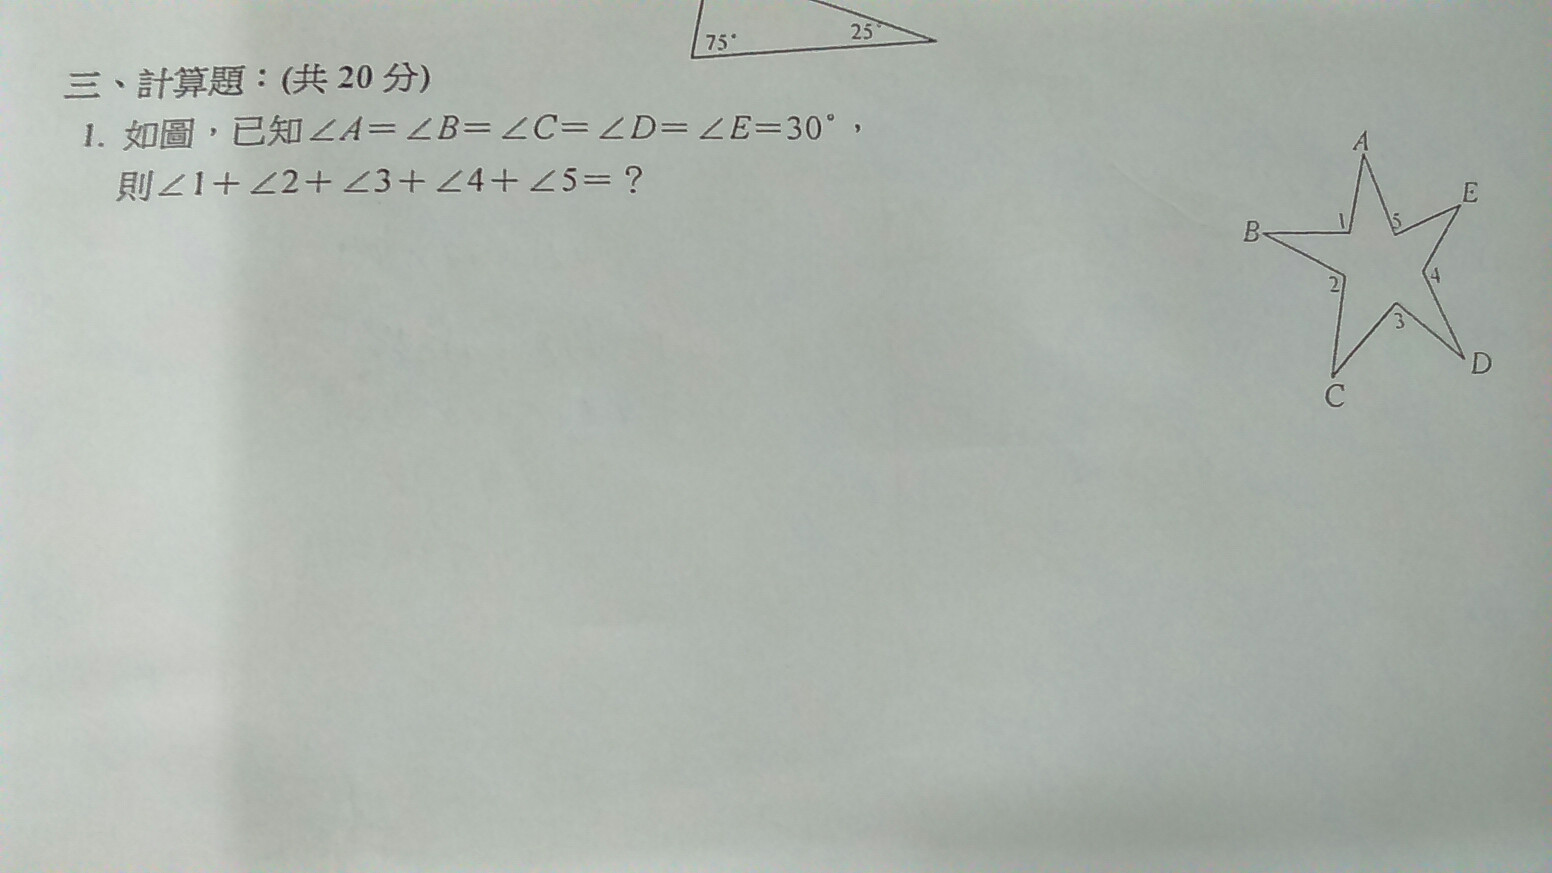 75° 25°
三、計算題：(共 20 分)
1. 如圖，已知∠A=∠B=∠C=∠D=∠E=30°，
則∠1+∠2+∠3+∠4+∠5=？
A
E
1 5
B
4
2
3
D
C